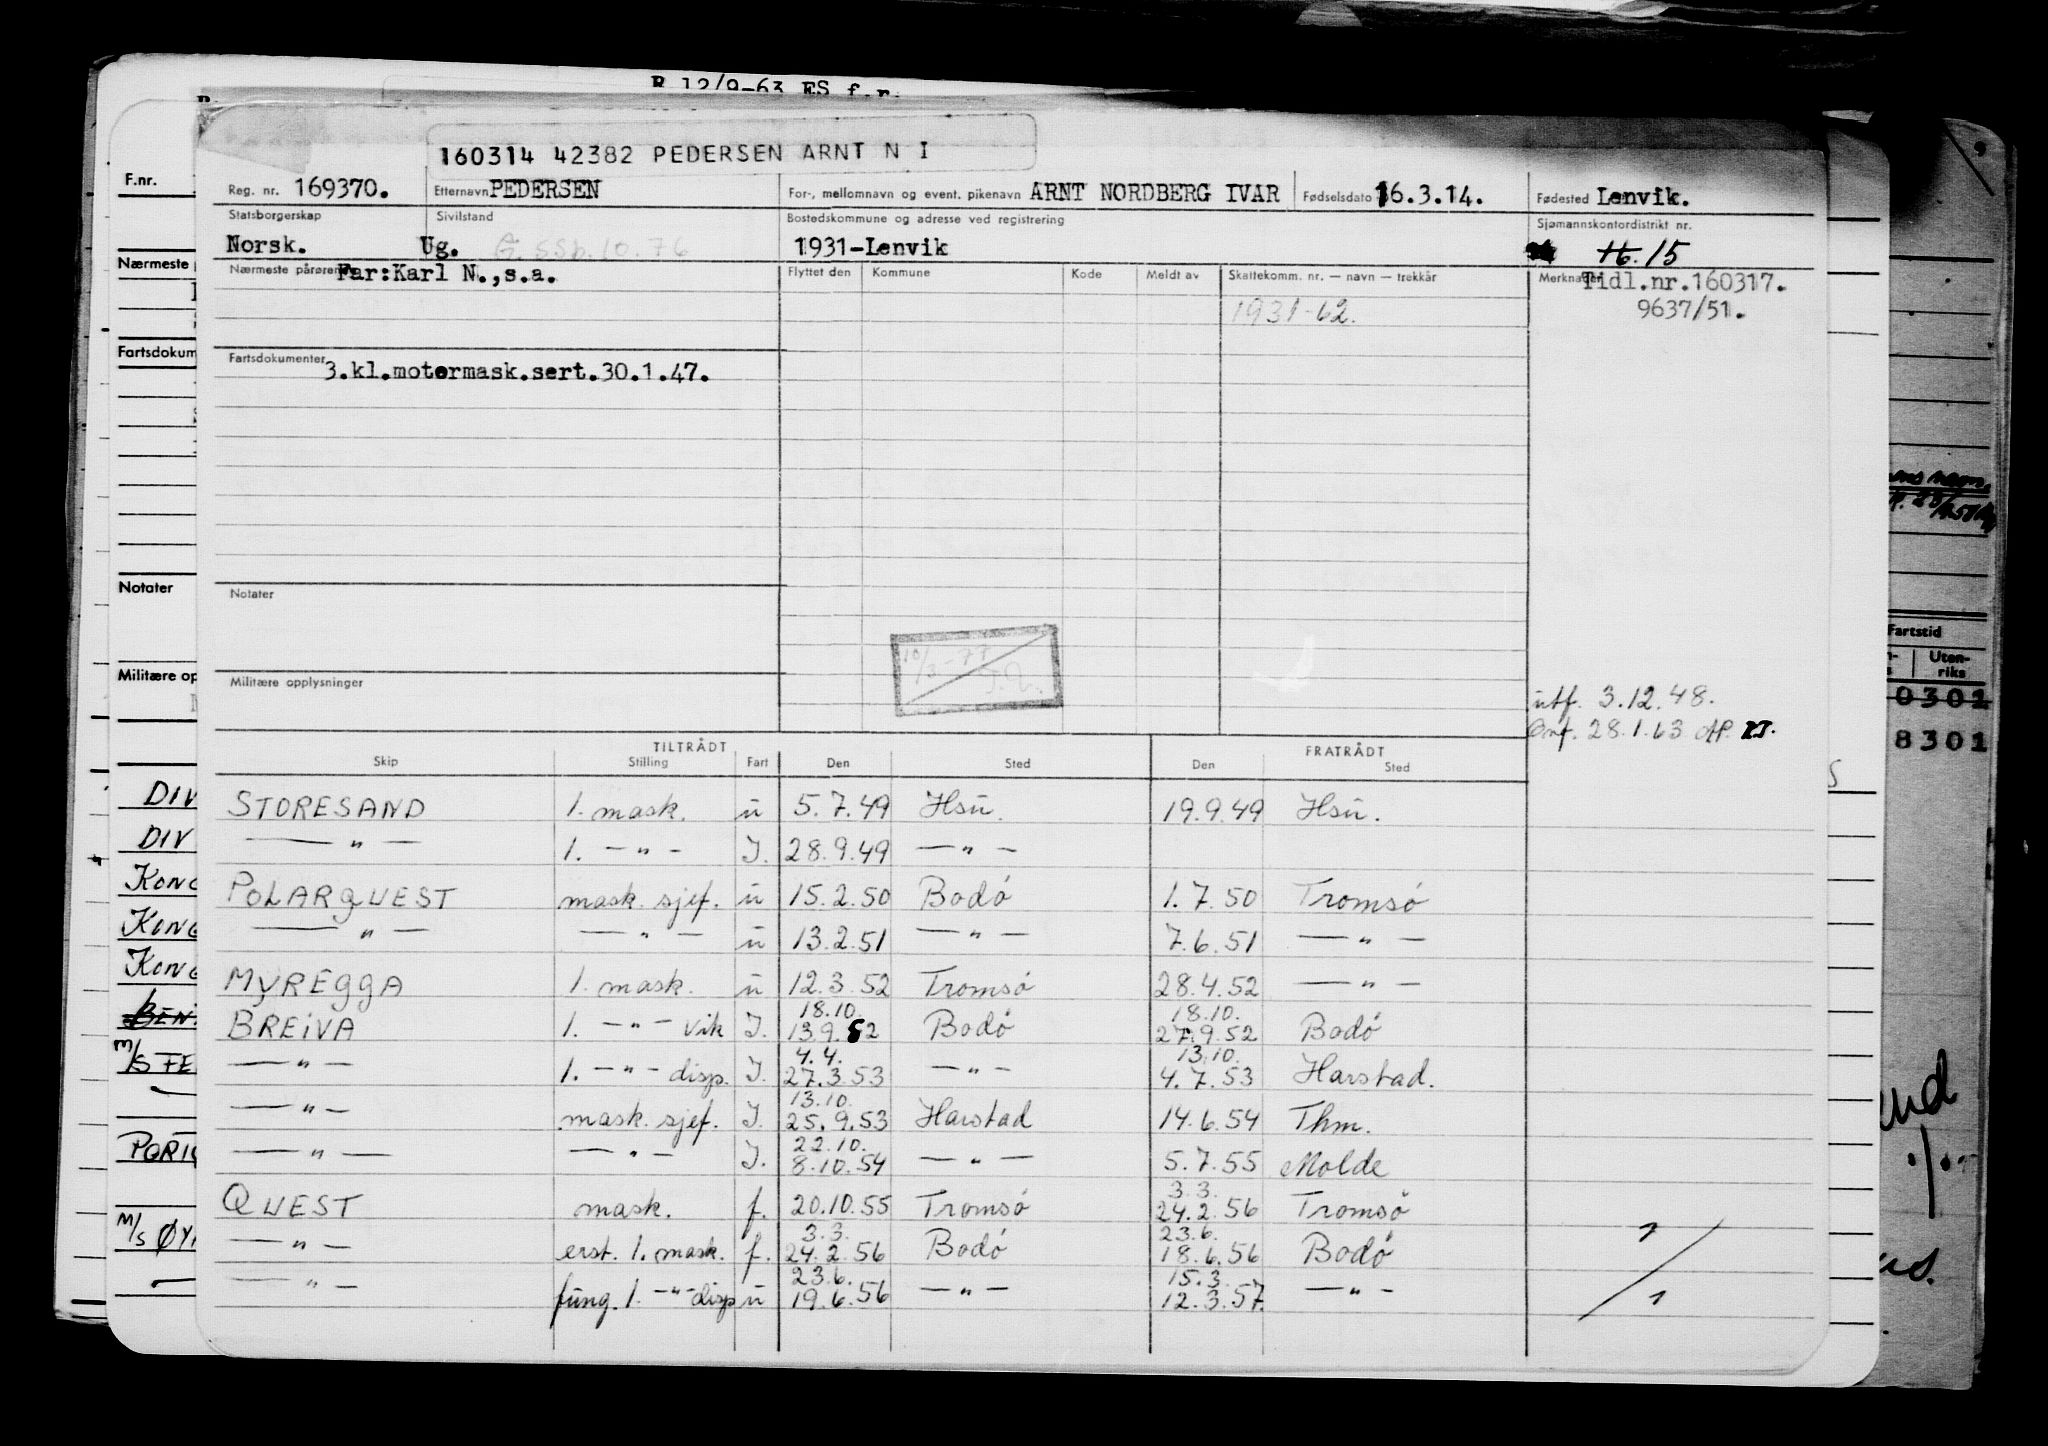 R 12/9-63 ES f.r.
160314 42382 PEDERSEN ARNT N I
F.nr.
Reg. nr. 169370. Etternavn PEDERSEN For-, mellomnavn og event. pikenavn ARNT NORDBERG IVAR Fødselsdato 16.3.14. Fødested Lenvik.
Statsborgerskap Sivilstand Bostedskommune og adresse ved registrering Sjømannskontordistrikt nr.
Norsk. Ug. G. SSb. 10.76 1931-Lenvik 16. 15
Nærmeste pårørende Far:Karl N.,s.a. Flyttet den Kommune Kode Meldt av Skattekomm. nr. — navn — trekkår Merknader Tidl.nr.160317.
1931-62. 9637/51.
Fartsdokumenter 3.kl.motormask.sert.30.1.47.
Notater
10/3-77
Militære opplysninger
utf. 3.12.48.
Omf. 28.1.63 AP.
TILTRÅDT FRATRÅDT
Skip Stilling Fart Den Sted Den Sted
STORESAND 1. mask. u 5.7.49 Hsu. 19.9.49 Hsu.
— " — 1. — " — I. 28.9.49 — " —
POLARQUEST mask. sjef. u 15.2.50 Bodø 1.7.50 Tromsø
— " — — " — u 13.2.51 — " — 7.6.51 — " —
MYREGGA 1. mask. u 12.3.52 Tromsø 28.4.52 — " —
18.10. 18.10.
BREIVA 1. — " — vik I. 13.9.52 Bodø 27.9.52 Bodø
4.4. 13.10.
— " — 1. — " — disp. I. 27.3.53 — " — 4.7.53 Harstad.
13.10.
— " — mask. sjef. I. 25.9.53 Harstad 14.6.54 Thm.
22.10.
— " — — " — I. 8.10.54 — " — 5.7.55 Molde
3.3.
QUEST mask. f. 20.10.55 Tromsø 24.2.56 Tromsø
3.3. 23.6.
— " — erst. 1. mask. f. 24.2.56 Bodø 18.6.56 Bodø
23.6. 15.3.
— " — fung. 1. — " — disp u 19.6.56 — " — 12.3.57. — " —
Nærmeste
Fartsdokum
Notater
Militære op
DIV
DIV
KONG
KONG
KONG
BEN
M/S FE
M/S ØY
Fartstid
Uten-
riks
0301
8301